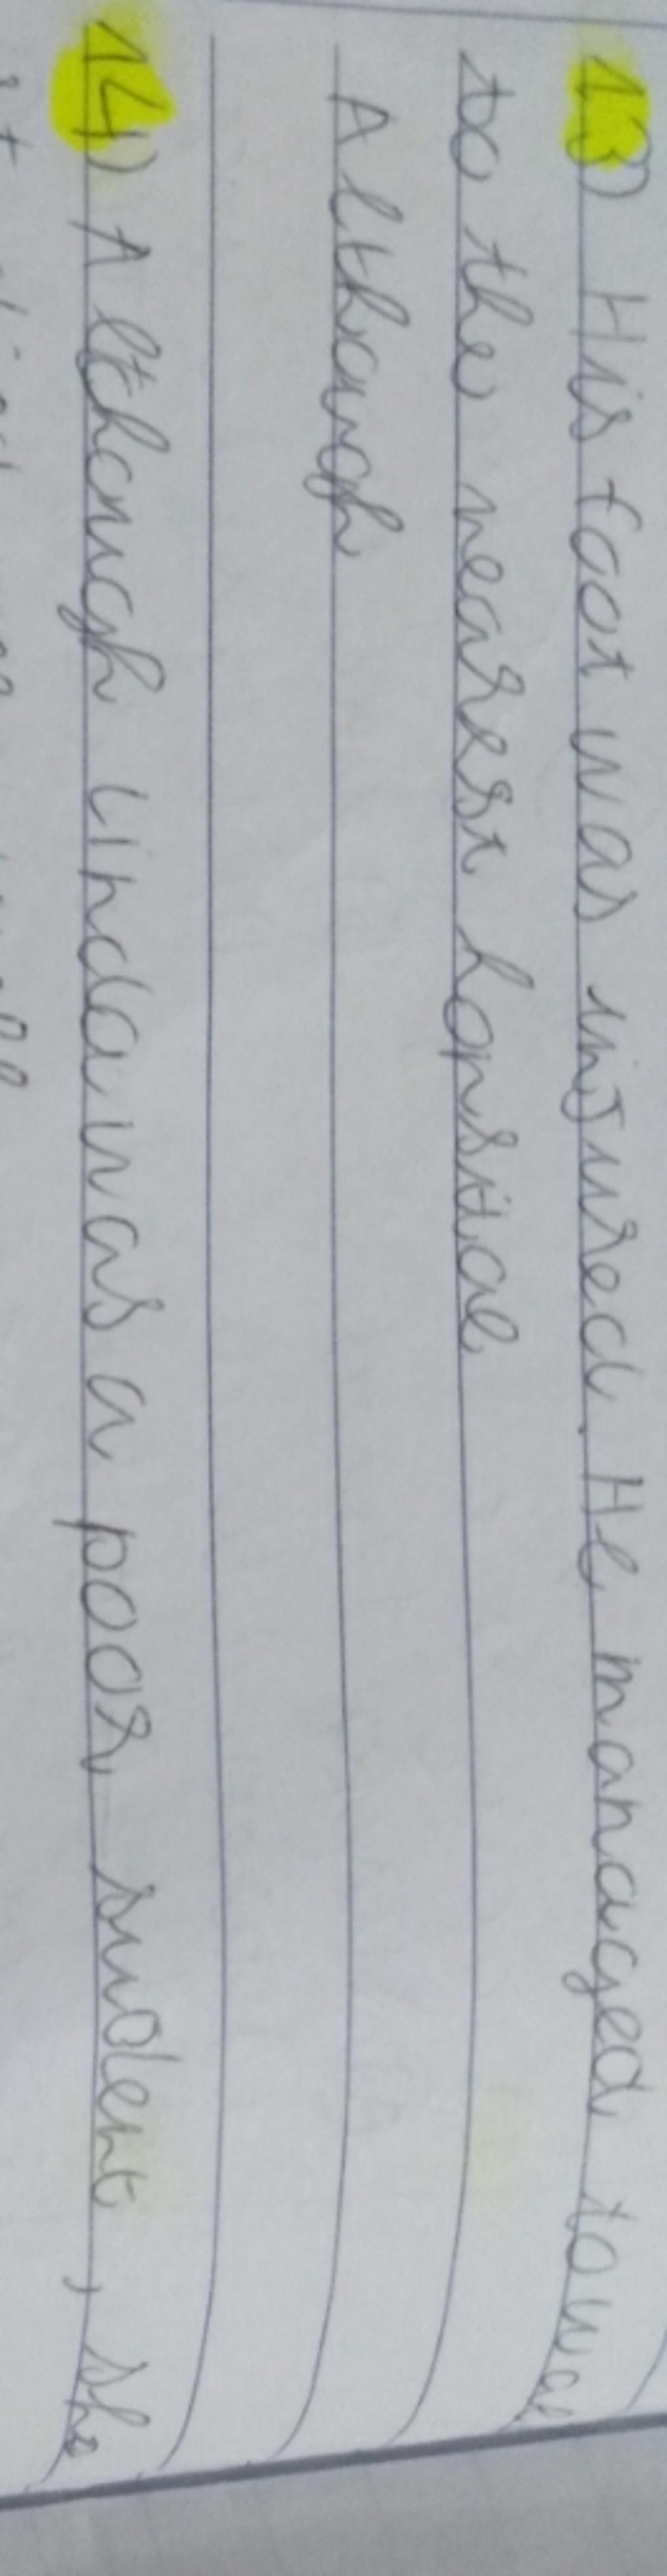 13) His foot was injured. He managed to wal
to the nearest hopsital
Although
14) Although Linda was a poor student, she